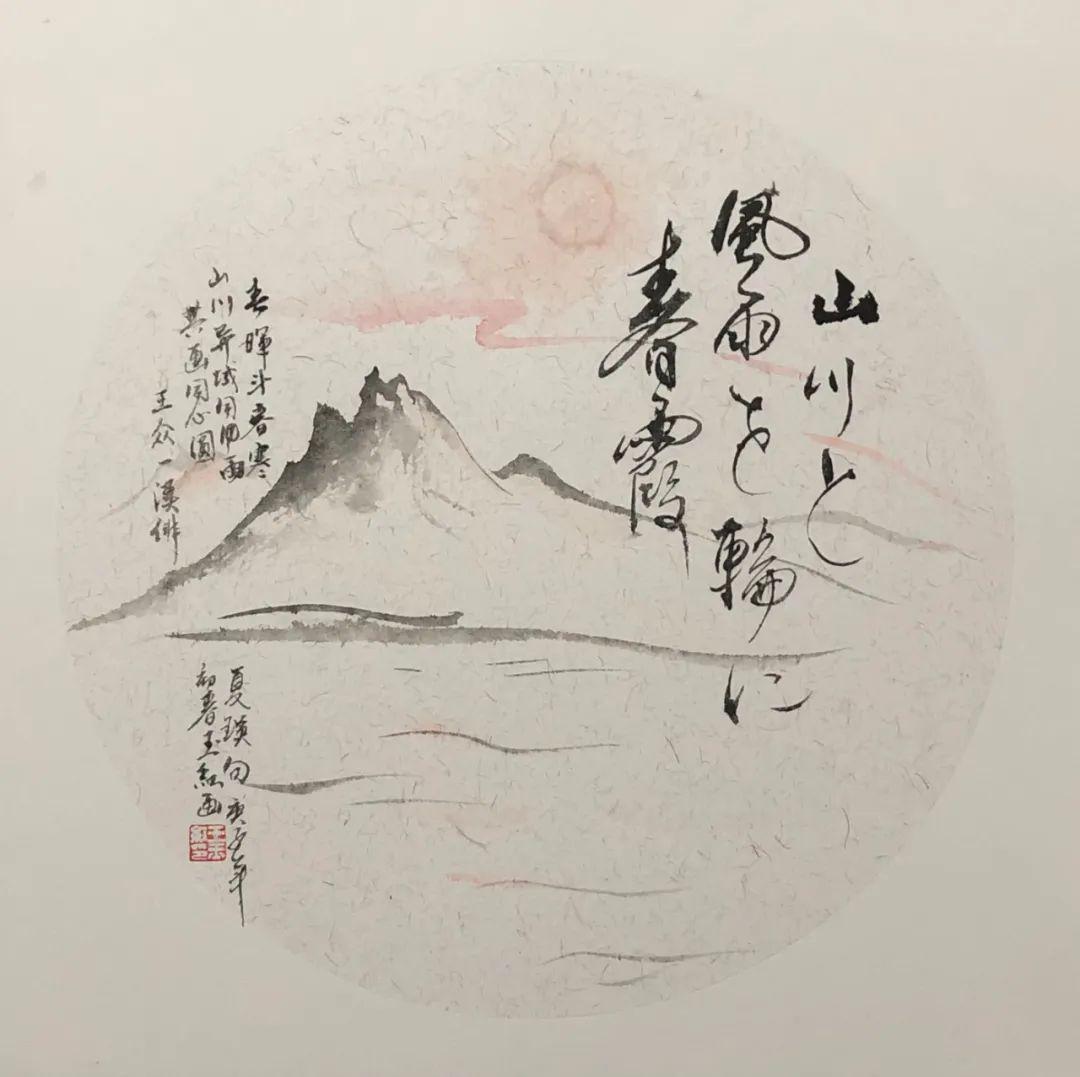 山川と
風雨を輪に
春霞
春暉斗春寒
山川异域同風雨
共画同心圓
王众一漢俳
夏瑛句 庚子年
初春玉紅画